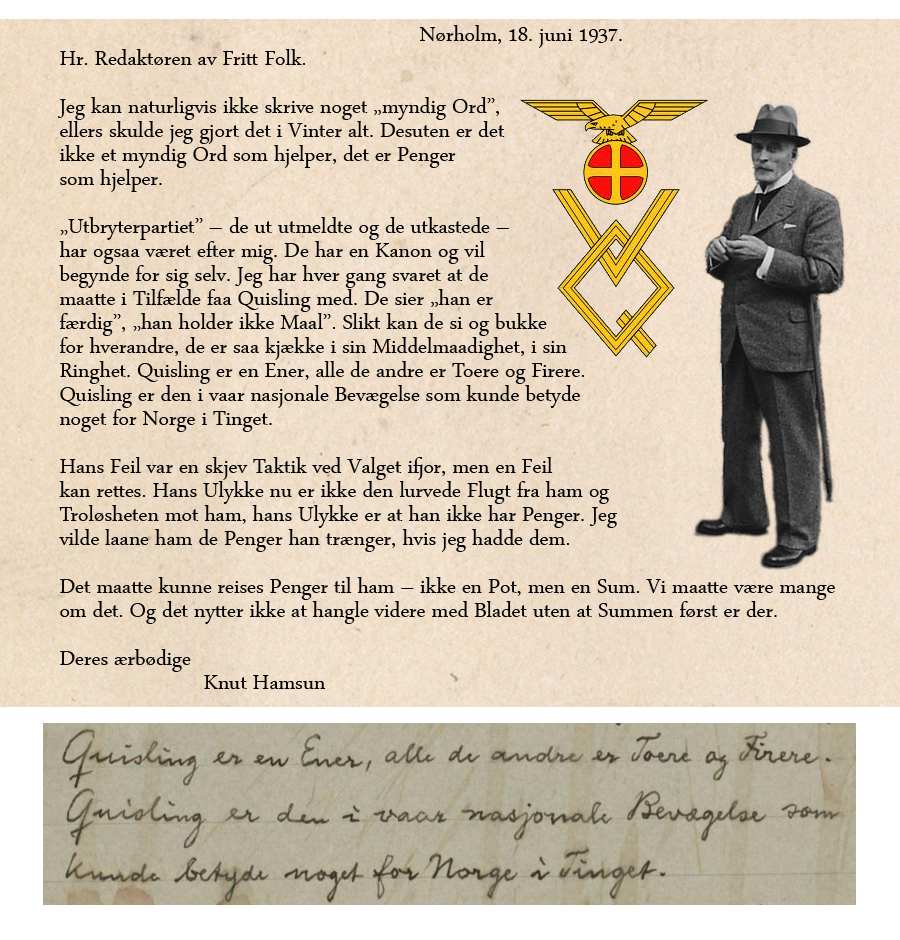 Nørholm, 18. juni 1937.
Hr. Redaktøren av Fritt Folk.
Jeg kan naturligvis ikke skrive noget „myndig Ord”,
ellers skulde jeg gjort det i Vinter alt. Desuten er det
ikke et myndig Ord som hjelper, det er Penger
som hjelper.
„Utbryterpartiet” – de ut utmeldte og de utkastede –
har ogsaa været efter mig. De har en Kanon og vil
begynde for sig selv. Jeg har hver gang svaret at de
maatte i Tilfælde faa Quisling med. De sier „han er
færdig”, „han holder ikke Maal”. Slikt kan de si og bukke
for hverandre, de er saa kjække i sin Middelmaadighet, i sin
Ringhet. Quisling er en Ener, alle de andre er Toere og Firere.
Quisling er den i vaar nasjonale Bevægelse som kunde betyde
noget for Norge i Tinget.
Hans Feil var en skjev Taktik ved Valget ifjor, men en Feil
kan rettes. Hans Ulykke nu er ikke den lurvede Flugt fra ham og
Troløsheten mot ham, hans Ulykke er at han ikke har Penger. Jeg
vilde laane ham de Penger han trænger, hvis jeg hadde dem.
Det maatte kunne reises Penger til ham – ikke en Pot, men en Sum. Vi maatte være mange
om det. Og det nytter ikke at hangle videre med Bladet uten at Summen først er der.
Deres ærbødige
Knut Hamsun
Quisling er en Ener, alle de andre er Toere og Firere.
Quisling er den i vaar nasjonale Bevægelse som
kunde betyde noget for Norge i Tinget.